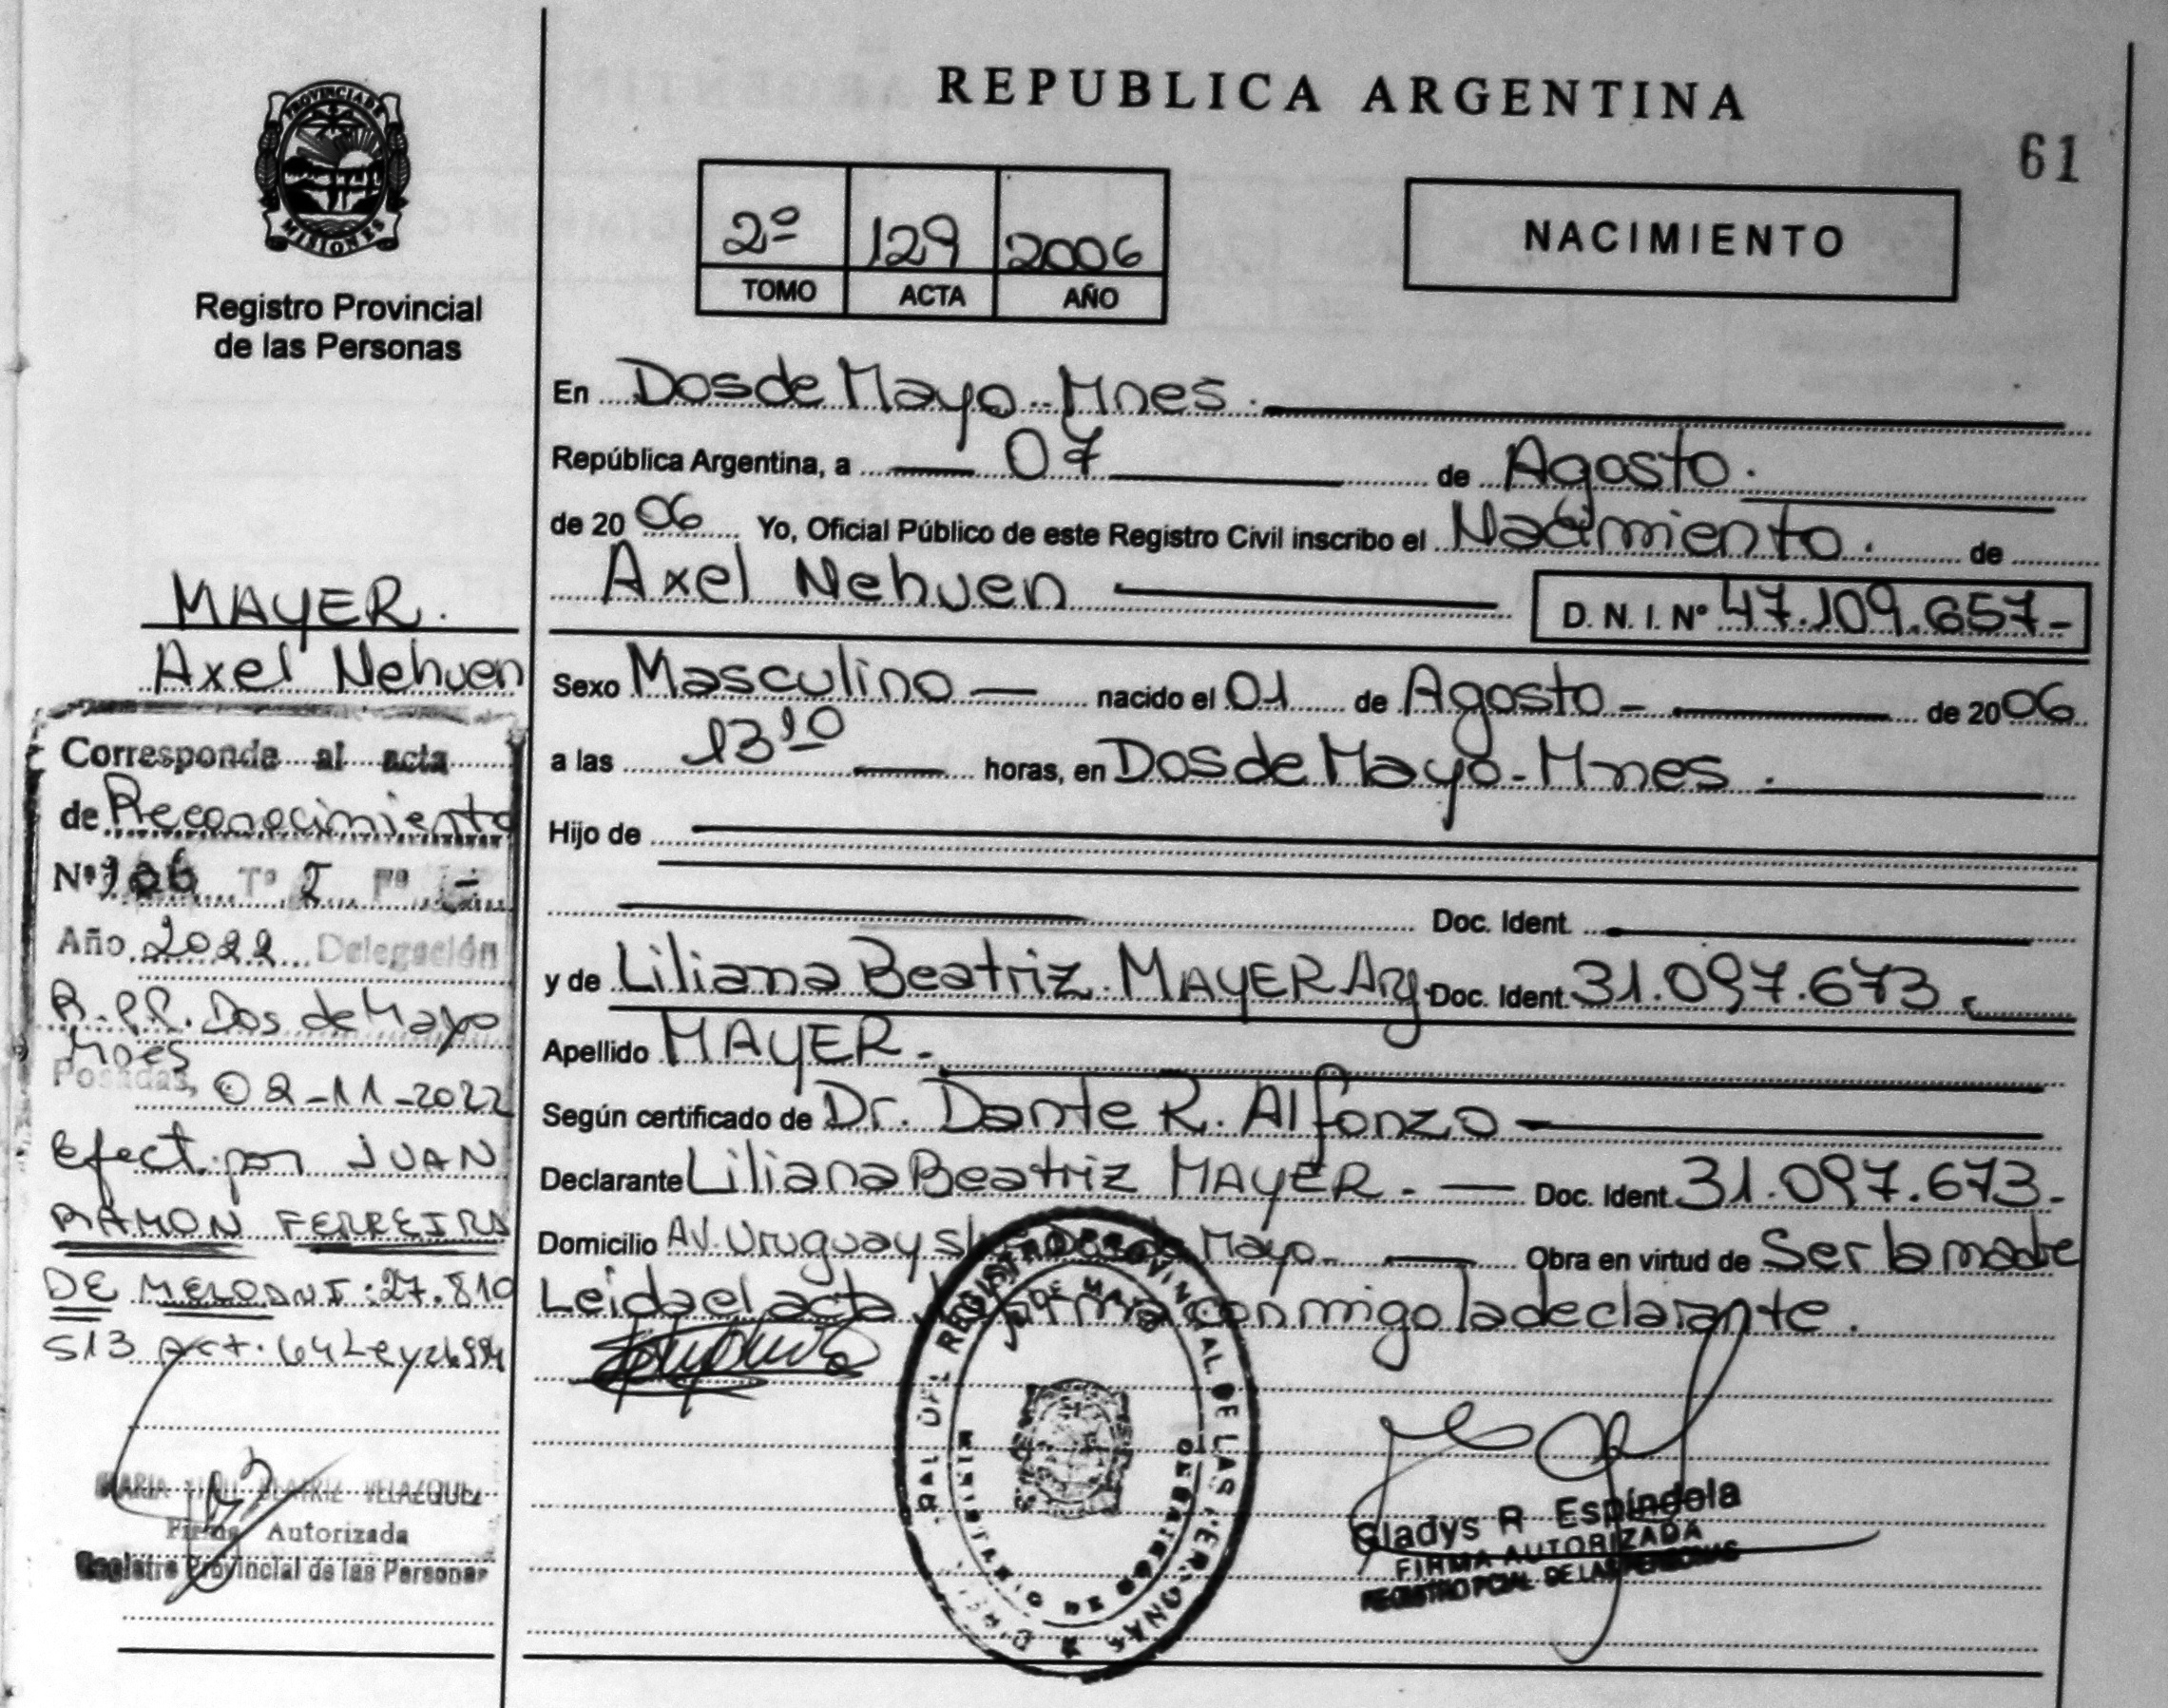 PROVINCIA DE
MISIONES
Registro Provincial
de las Personas
MAYER.
Axel Nehuen
Corresponde al acta
de Reconocimiento
Nº 106 Tº I Fº -
Año 2022 Delegación
R.P.P. Dos de Mayo
Mnes
Posadas, 02-11-2022
Efect. por JUAN
RAMON FERREIRA
DE MELO DNI: 27.810
513 Art. 64 Ley
Firma Autorizada
Registro Provincial de las Personas
REPUBLICA ARGENTINA
61
2º 129 2006
TOMO ACTA AÑO
NACIMIENTO
En Dos de Mayo - Mnes.
República Argentina, a 07 de Agosto.
de 2006 Yo, Oficial Público de este Registro Civil inscribo el Nacimiento. de
Axel Nehuen D. N. I. Nº 47.109.657-
Sexo Masculino — nacido el 01 de Agosto - de 2006
a las 13 10 horas, en Dos de Mayo - Mnes.
Hijo de
Doc. Ident.
y de Liliana Beatriz MAYER Arg. Doc. Ident. 31.097.673.
Apellido MAYER.-
Según certificado de Dr. Dante R. Alfonzo —
Declarante Liliana Beatriz MAYER. — Doc. Ident. 31.097.673.-
Domicilio Av. Uruguay s/n Dos de Mayo. — Obra en virtud de Ser la madre
Leida el acta la firma conmigo la declarante.
REGISTRO PROVINCIAL DE LAS PERSONAS
MINISTERIO DE GOBIERNO
Gladys R Espíndola
FIRMA AUTORIZADA
REGISTRO PCIAL DE LAS PERSONAS